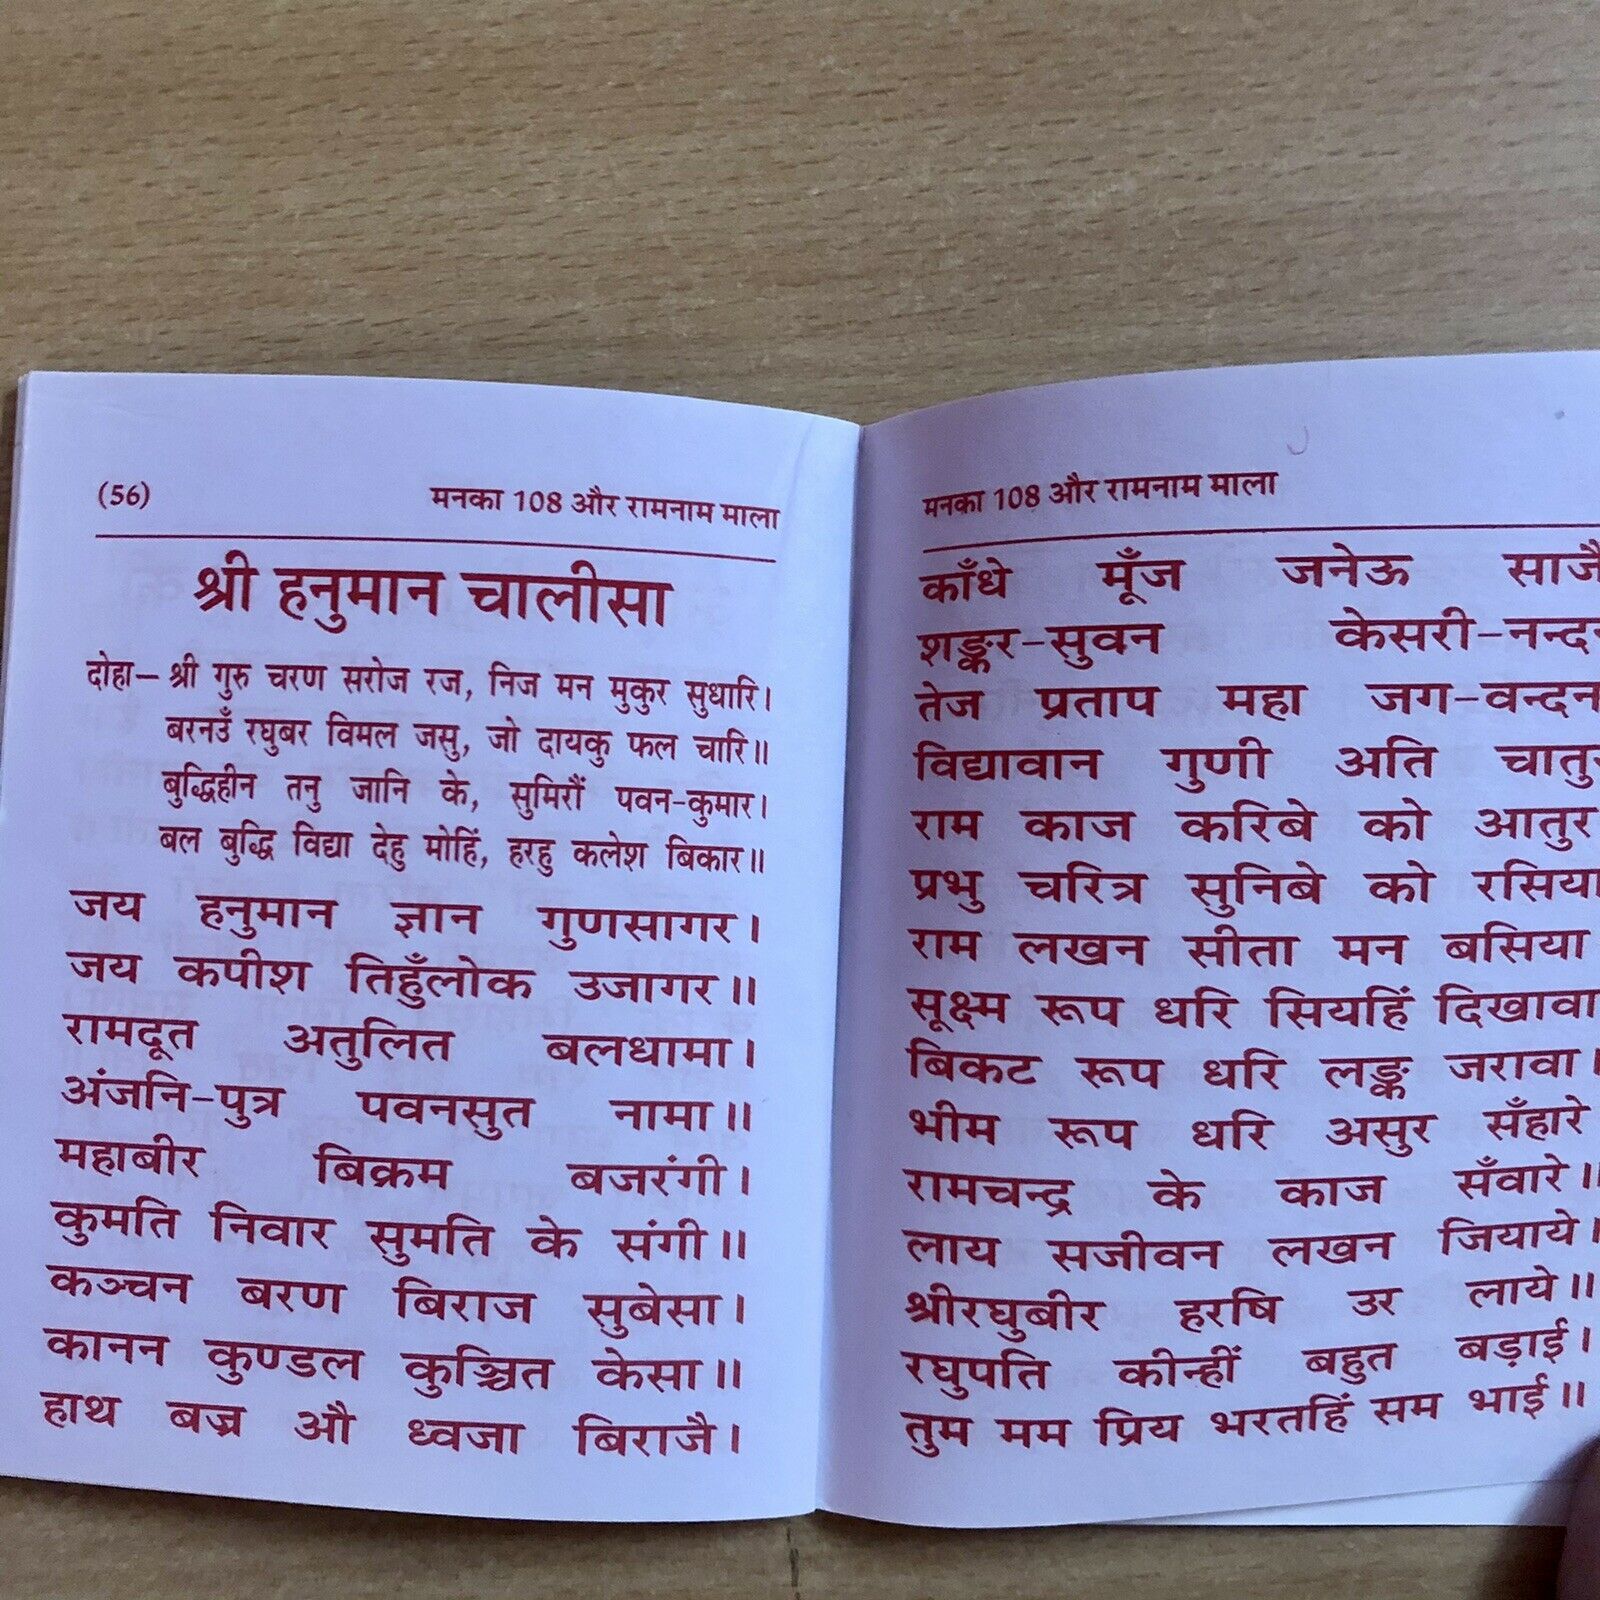 (56) मनका 108 और रामनाम माला
श्री हनुमान चालीसा
दोहा– श्री गुरु चरण सरोज रज, निज मन मुकुर सुधारि।
बरनउँ रघुबर विमल जसु, जो दायकु फल चारि॥
बुद्धिहीन तनु जानि के, सुमिरौं पवन-कुमार।
बल बुद्धि विद्या देहु मोहिं, हरहु कलेश बिकार॥
जय हनुमान ज्ञान गुणसागर।
जय कपीश तिहुँलोक उजागर॥
रामदूत अतुलित बलधामा।
अंजनि-पुत्र पवनसुत नामा॥
महाबीर बिक्रम बजरंगी।
कुमति निवार सुमति के संगी॥
कञ्चन बरण बिराज सुबेसा।
कानन कुण्डल कुञ्चित केसा॥
हाथ बज्र औ ध्वजा बिराजै।
मनका 108 और रामनाम माला
काँधे मूँज जनेऊ साजै
शङ्कर-सुवन केसरी-नन्दन
तेज प्रताप महा जग-वन्दन
विद्यावान गुणी अति
राम काज करिबे को आतुर
प्रभु चरित्र सुनिबे को रसिया
राम लखन सीता मन बसिया
सूक्ष्म रूप धरि सियहिं दिखावा
बिकट रूप धरि लङ्क जरावा।
भीम रूप धरि असुर सँहारे
रामचन्द्र के काज सँवारे॥
लाय सजीवन लखन जियाये।
श्रीरघुबीर हरषि उर लाये॥
रघुपति कीन्हीं बहुत बड़ाई।
तुम मम प्रिय भरतहिं सम भाई॥